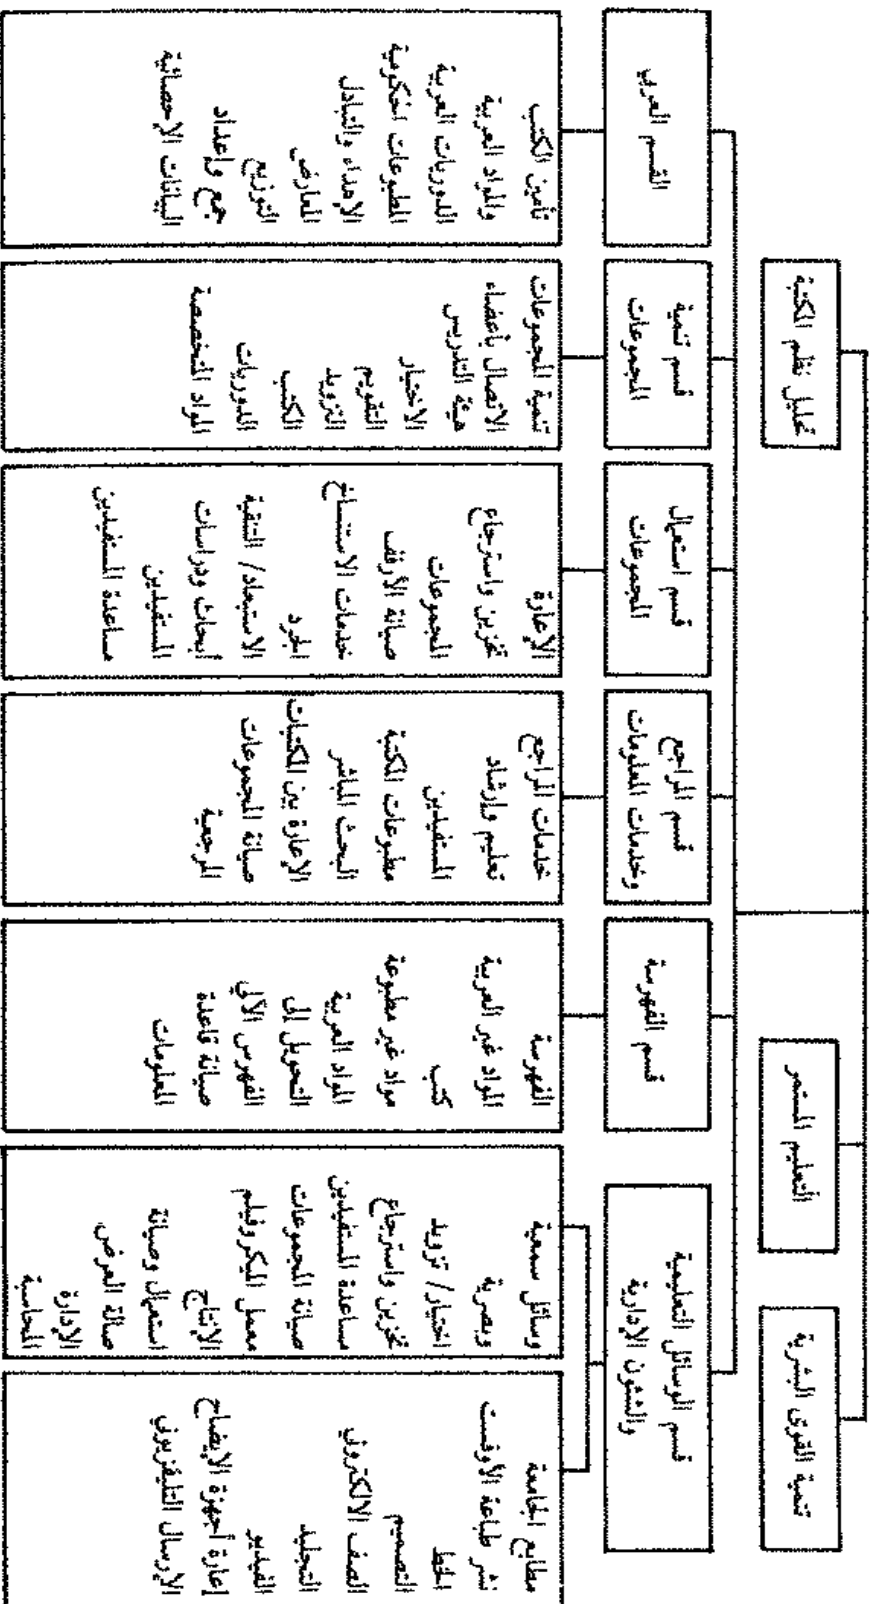 تحليل نظم المكتبة
التعليم المستمر
تنمية القوى البشرية
القسم العربي
قسم تنمية
المجموعات
قسم استعمال
المجموعات
قسم المراجع
وخدمات المعلومات
قسم الفهرسة
قسم الوسائل التعليمية
والشئون الإدارية
تأمين الكتب
والمواد العربية
الدوريات العربية
المطبوعات الحكومية
الإهداء والتبادل
المعارض
التوزيع
جمع وإعداد
البيانات الإحصائية
تنمية المجموعات
الاتصال بأعضاء
هيئة التدريس
الاختيار
التقويم
التزويد
الكتب
الدوريات
المواد المتخصصة
الإعارة
تخزين واسترجاع
المجموعات
صيانة الأرفف
خدمات الاستنساخ
الجرد
الاستبعاد/ التنقية
أبحاث ودراسات
المستفيدين
مساعدة المستفيدين
خدمات المراجع
تعليم وإرشاد
المستفيدين
مطبوعات المكتبة
البحث المباشر
الإعارة بين المكتبات
صيانة المجموعات
المرجعية
الفهرسة
المواد غير العربية
كتب
مواد غير مطبوعة
المواد العربية
التحويل إلى
الفهرس الآلي
صيانة قاعدة
المعلومات
وسائل سمعية
وبصرية
اختيار/ تزويد
تخزين واسترجاع
مساعدة المستفيدين
صيانة المجموعات
معمل الميكروفيلم
الإنتاج
استعمال وصيانة
صالة العرض
الإدارة
المحاسبة
مطابع الجامعة
نشر طباعة الأوفست
الخط
التصميم
الصف الالكتروني
التجليد
الفيديو
إعارة أجهزة الإيضاح
الإرسال التليفزيوني